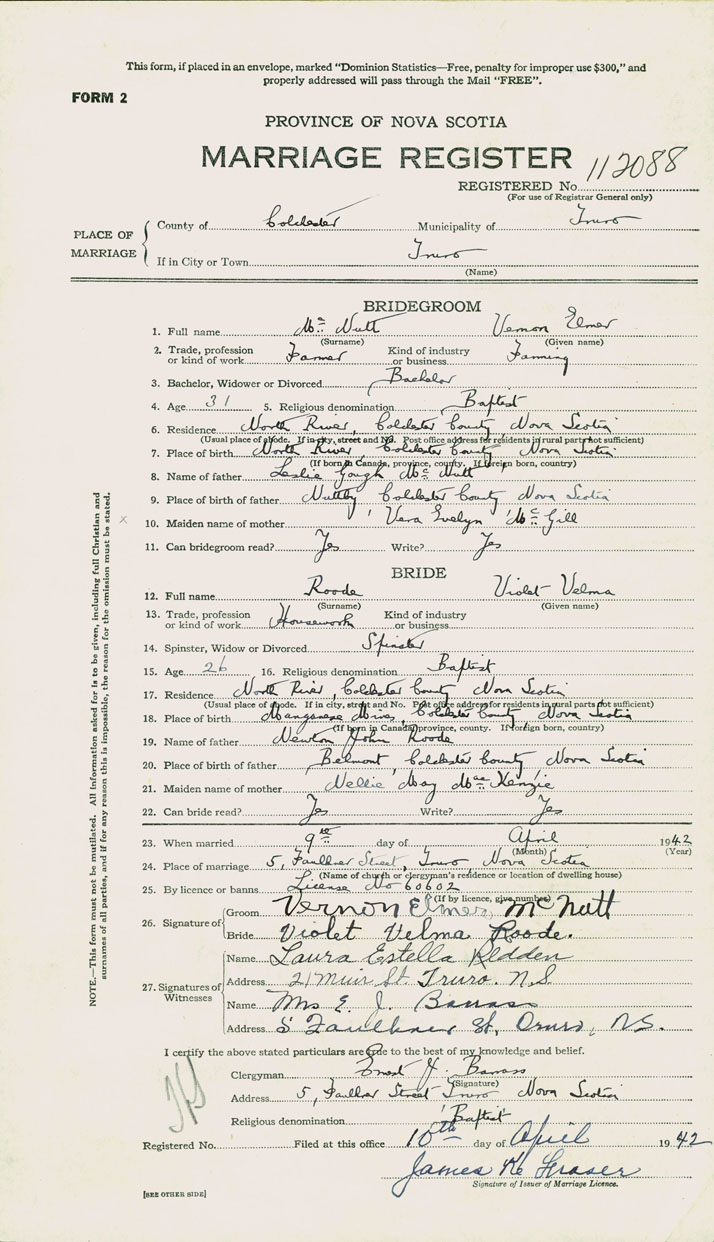 This form, if placed in an envelope, marked "Dominion Statistics—Free, penalty for improper use $300," and
properly addressed will pass through the Mail "FREE".
FORM 2
PROVINCE OF NOVA SCOTIA
MARRIAGE REGISTER 112088
REGISTERED No.
(For use of Registrar General only)
PLACE OF MARRIAGE
County of Colchester Municipality of Truro
If in City or Town Truro
(Name)
BRIDEGROOM
1. Full name McNutt Vernon Elmer
(Surname) (Given name)
2. Trade, profession or kind of work Farmer Kind of industry or business Farming
3. Bachelor, Widower or Divorced Bachelor
4. Age 31 5. Religious denomination Baptist
6. Residence North River, Colchester County Nova Scotia
(Usual place of abode. If in city, street and No. Post office address for residents in rural parts not sufficient)
7. Place of birth North River, Colchester County Nova Scotia
(If born in Canada, province, county. If foreign born, country)
8. Name of father Leslie Gough McNutt
9. Place of birth of father Nuttby Colchester County Nova Scotia
10. Maiden name of mother Vera Evelyn McGill
11. Can bridegroom read? Yes Write? Yes
BRIDE
12. Full name Roode Violet Velma
(Surname) (Given name)
13. Trade, profession or kind of work Housework Kind of industry or business
14. Spinster, Widow or Divorced Spinster
15. Age 26 16. Religious denomination Baptist
17. Residence North River, Colchester County Nova Scotia
(Usual place of abode. If in city, street and No. Post office address for residents in rural parts not sufficient)
18. Place of birth Manganese Mines, Colchester County, Nova Scotia
(If born in Canada, province, county. If foreign born, country)
19. Name of father Newton John Roode
20. Place of birth of father Belmont, Colchester County Nova Scotia
21. Maiden name of mother Nellie May MacKenzie
22. Can bride read? Yes Write? Yes
23. When married 9th day of April 1942
(Month) (Year)
24. Place of marriage 5, Faulkner Street, Truro, Nova Scotia
(Name of church or clergyman's residence or location of dwelling house)
25. By licence or banns License No 60602
(If by licence, give number)
26. Signature of
Groom Vernon Elmer McNutt
Bride Violet Velma Roode.
27. Signatures of Witnesses
Name Laura Estella Redden
Address 21 Muir St. Truro. N.S.
Name Mrs E. J. Barrass
Address 5 Faulkner St, Truro, N.S.
I certify the above stated particulars are true to the best of my knowledge and belief.
Clergyman Ernest J. Barrass
(Signature)
Address 5, Faulkner Street Truro Nova Scotia
Religious denomination Baptist
Registered No. Filed at this office 10th day of April 1942
James K. Fraser
Signature of Issuer of Marriage Licence.
[SEE OTHER SIDE]
NOTE.—This form must not be mutilated. All information asked for is to be given, including full Christian and
surnames of all parties, and if for any reason this is impossible, the reason for the omission must be stated.